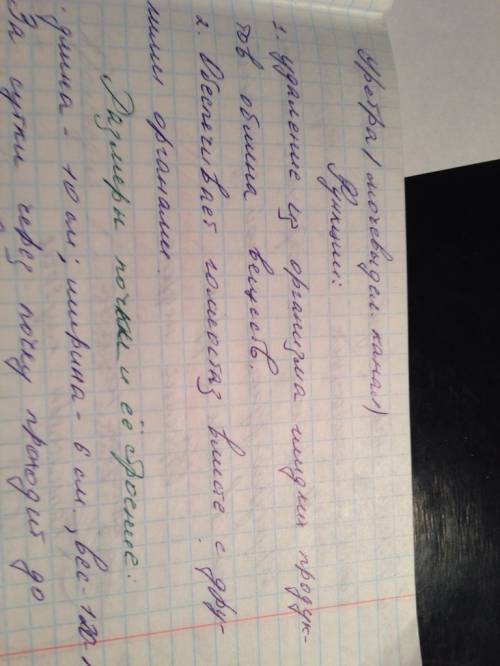 Уретра (мочевыдел. канал)
Функции:
1. удаление из организма жидких продук-
тов обмена веществ.
2. Обеспечивает гомеостаз вместе с дру-
гими органами.
Размеры почки и её строение:
длина - 10 см; ширина - 6 см, вес - 120-
За сутки через почку проходит до